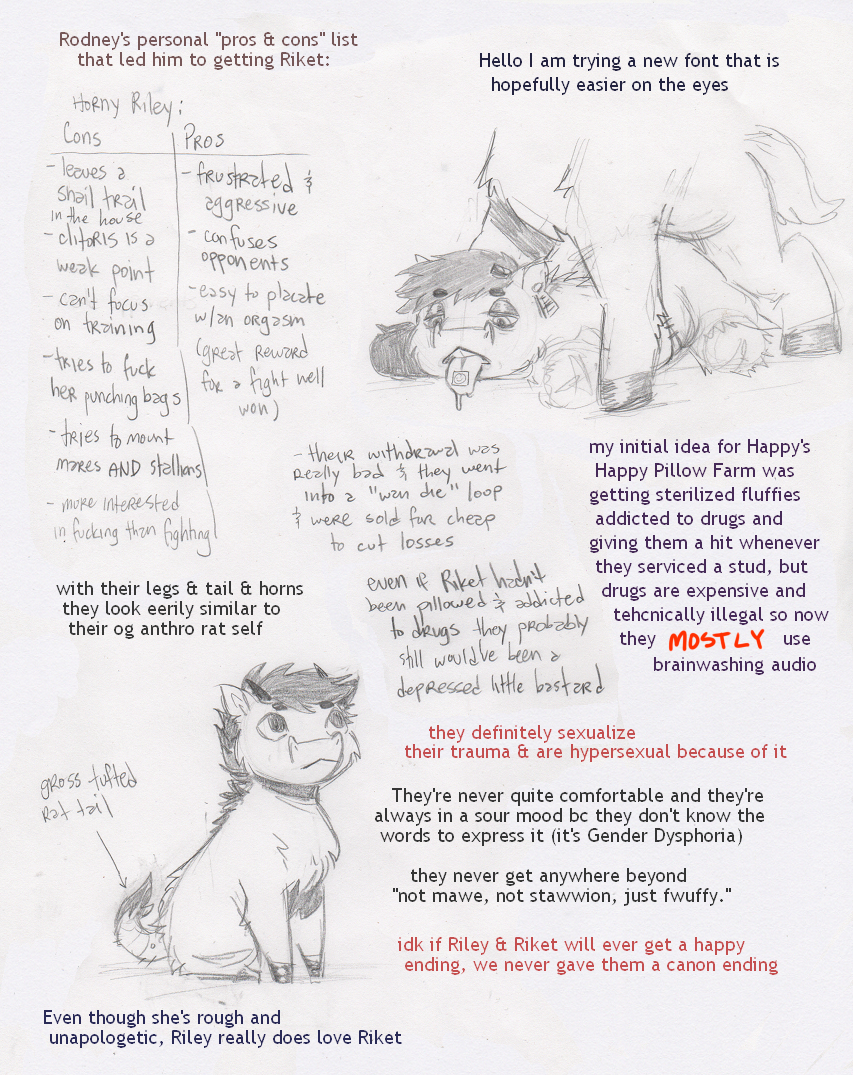 Rodney's personal "pros & cons" list
that led him to getting Riket:
Hello I am trying a new font that is
hopefully easier on the eyes
Horny Riley:
Cons
- leaves a
snail trail
in the house
- clitoris is a
weak point
- can't focus
on training
- tries to fuck
her punching bags
- tries to mount
mares AND stallions
- more interested
in fucking than fighting
Pros
- frustrated &
aggressive
- confuses
opponents
- easy to placate
w/an orgasm
(great reward
for a fight well
won)
- their withdrawal was
really bad & they went
into a "wan die" loop
& were sold for cheap
to cut losses
my initial idea for Happy's
Happy Pillow Farm was
getting sterilized fluffies
addicted to drugs and
giving them a hit whenever
they serviced a stud, but
drugs are expensive and
tehcnically illegal so now
they MOSTLY use
brainwashing audio
with their legs & tail & horns
they look eerily similar to
their og anthro rat self
even if Riket hadn't
been pillowed & addicted
to drugs they probably
still would've been a
depressed little bastard
they definitely sexualize
their trauma & are hypersexual because of it
gross tufted
rat tail
They're never quite comfortable and they're
always in a sour mood bc they don't know the
words to express it (it's Gender Dysphoria)
they never get anywhere beyond
"not mawe, not stawwion, just fwuffy."
idk if Riley & Riket will ever get a happy
ending, we never gave them a canon ending
Even though she's rough and
unapologetic, Riley really does love Riket